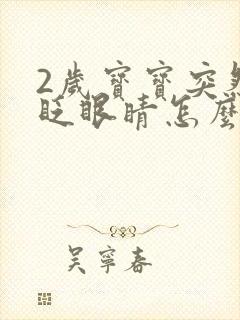 2歲寶寶突然
眨眼睛怎麼
吳寧春